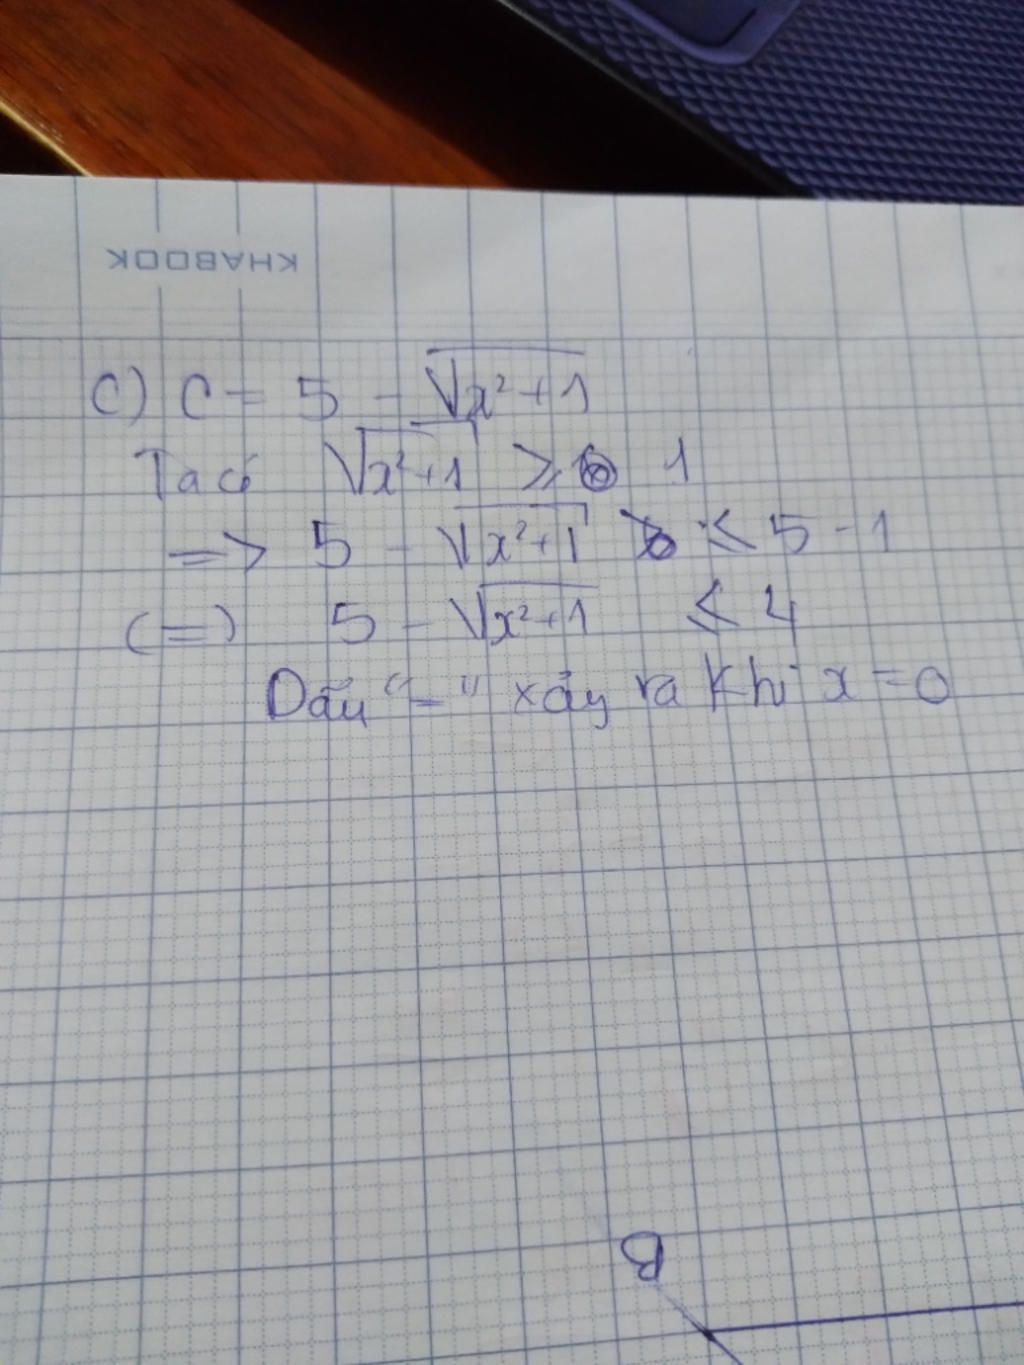 KHABOOK
c) C = 5 - √x²+1
Ta có √x²+1 ⩾ 1
=> 5 - √x²+1 ⩽ 5 - 1
(=) 5 - √x²+1 ⩽ 4
Dấu "=" xảy ra khi x = 0
B